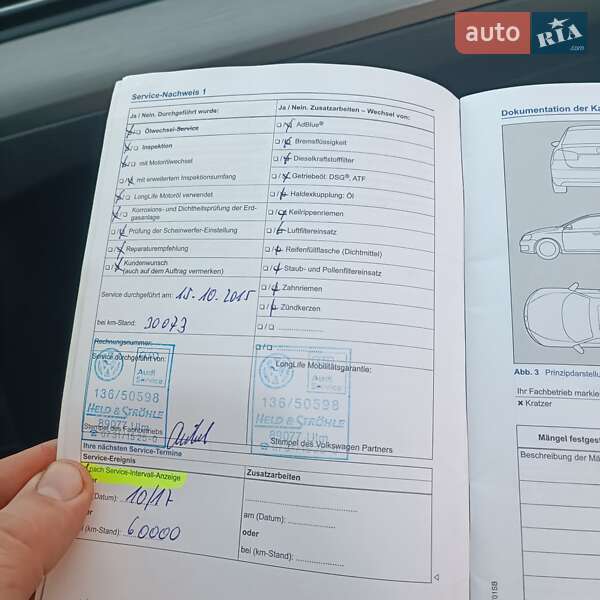 auto RIA .com
Service-Nachweis 1
Ja / Nein. Durchgeführt wurde:
Ölwechsel-Service
Inspektion
mit Motorölwechsel
mit erweitertem Inspektionsumfang
LongLife Motoröl verwendet
Korrosions- und Dichtheitsprüfung der Erd-
gasanlage
Prüfung der Scheinwerfer-Einstellung
Reparaturempfehlung
Kundenwunsch
(auch auf dem Auftrag vermerken)
Service durchgeführt am: 15.10.2015
bei km-Stand: 30073
Rechnungsnummer:
Service durchgeführt von:
Audi
Service
136/50598
HELD & STRÖHLE
89077 Ulm
Stempel des Fachbetriebs
Ja / Nein. Zusatzarbeiten – Wechsel von:
AdBlue®
Bremsflüssigkeit
Dieselkraftstofffilter
Getriebeöl: DSG®, ATF
Haldexkupplung: Öl
Keilrippenriemen
Luftfiltereinsatz
Reifenfüllflasche (Dichtmittel)
Staub- und Pollenfiltereinsatz
Zahnriemen
Zündkerzen
LongLife Mobilitätsgarantie:
Audi
Service
136/50598
HELD & STRÖHLE
89077 Ulm
Stempel des Volkswagen Partners
Ihre nächsten Service-Termine
Service-Ereignis
nach Service-Intervall-Anzeige
(Datum): 10/17
(km-Stand): 60000
Zusatzarbeiten
am (Datum):
oder
bei (km-Stand):
Dokumentation der Ka
Abb. 3 Prinzipdarstellu
Ihr Fachbetrieb markie
× Kratzer
Mängel festgest
Beschreibung der Mä